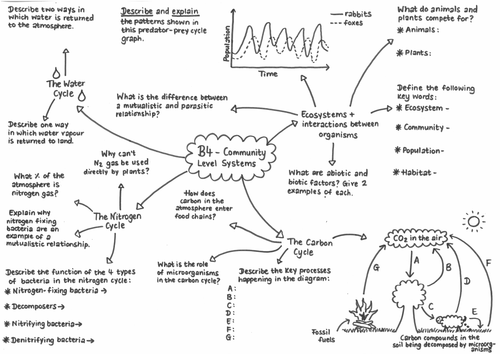 Describe two ways in
which water is returned
to the atmosphere.
The Water
Cycle
Describe one way
in which water vapour
is returned to land.
Describe and explain
the patterns shown in
this predator-prey cycle
graph.
Population
Time
rabbits
foxes
What do animals and
plants compete for?
* Animals:
* Plants:
What is the difference between
a mutualistic and parasitic
relationship?
Ecosystems +
interactions between
organisms
Define the following
key words:
* Ecosystem -
* Community -
* Population -
* Habitat -
B4 - Community
Level Systems
What are abiotic and
biotic factors? Give 2
examples of each.
Why can't
N2 gas be used
directly by plants?
What % of the
atmosphere is
nitrogen gas?
Explain why
nitrogen fixing
bacteria are an
example of a
mutualistic relationship.
The Nitrogen
Cycle
Describe the function of the 4 types
of bacteria in the nitrogen cycle:
* Nitrogen-fixing bacteria →
* Decomposers →
* Nitrifying bacteria →
* Denitrifying bacteria →
How does
carbon in the
atmosphere enter
food chains?
The Carbon
Cycle
What is the role of
microorganisms
in the carbon cycle?
Describe the key processes
happening in the diagram:
A:
B:
C:
D:
E:
F:
G:
CO2 in the air
A
B
C
D
E
F
G
Fossil
fuels
Carbon compounds in the
soil being decomposed by microorg-
anisms